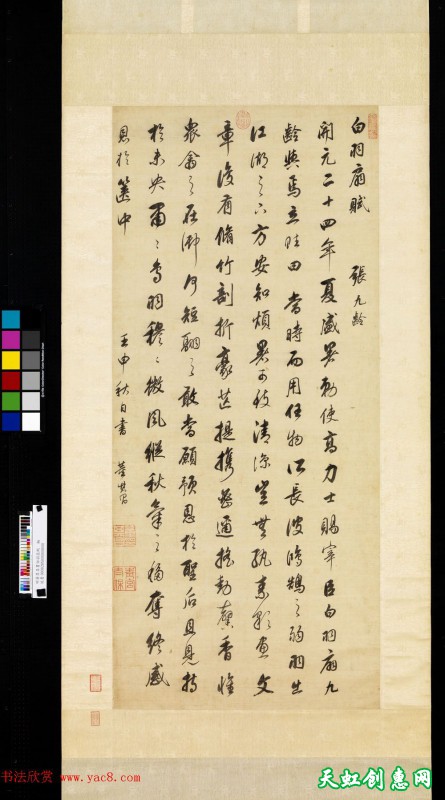 白羽扇賦 張九齡
開元二十四年夏盛暑勅使高力士賜宰臣白羽扇九
齡與焉立賦曰當時而用任物所長彼鴻鵠之弱羽出
江湖之下方安知煩暑可致清涼豈無紈素彩畫文
章復有脩竹剖析豪芒提攜密邇搖動馨香惟
衆禽之在御何短翮之敢當顧預恩於聖后且見持
於未央肅〻羽穆〻微風縱秋氣之移奪終感
恩於篋中
壬申秋日書 董其昌
书法欣赏 www.yac8.com
天虹创惠网